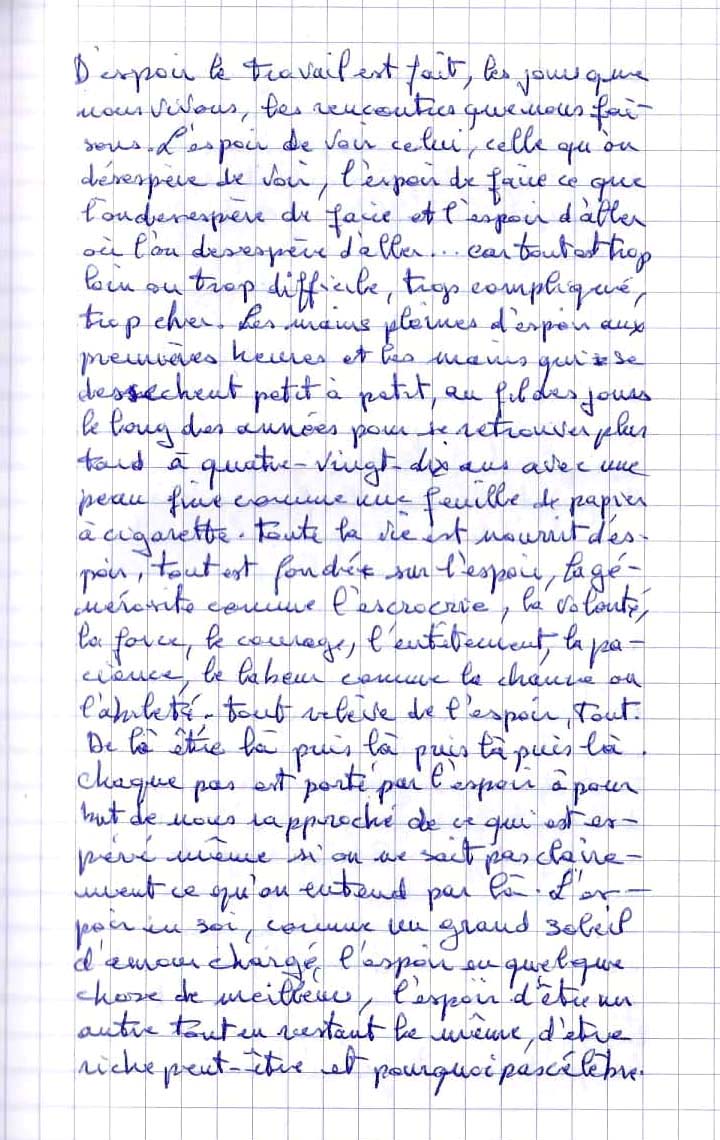 D'espoir le travail est fait, les jours que
nous vivons, les rencontres que nous fai-
sons. L'espoir de voir celui, celle qu'on
désespère de voir, l'espoir de faire ce que
l'on desespère de faire et l'espoir d'aller
où l'on desespère d'aller... car tout est trop
loin ou trop difficile, trop compliqué,
trop cher. Les mains pleines d'espoir aux
premières heures et les mains qui se
dessechent petit à petit, au fil des jours
le long des années pour se retrouver plus
tard à quatre-vingt-dix ans avec une
peau fine comme une feuille de papier
à cigarette. toute la vie est nourrit d'es-
poir, tout est fondé sur l'espoir, la gé-
nérosité comme l'escrocrie, la volonté,
la force, le courage, l'entêtement, la pa-
cience, le labeur comme la chance ou
l'abileté. tout relève de l'espoir, tout.
De là être là puis là puis là puis là.
chaque pas est porté par l'espoir à pour
but de nous rapproché de ce qui est es-
péré même si on ne sait pas claire-
ment ce qu'on entend par là. L'es-
poir en soi, comme un grand soleil
d'amour chargé, l'espoir en quelque
chose de meilleur, l'espoir d'être un
autre tout en restant le même, d'être
riche peut-être et pourquoi pas célèbre.